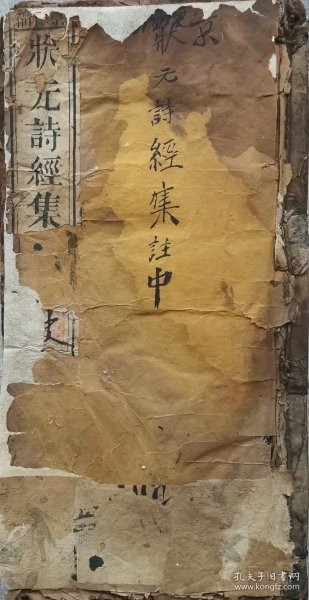 狀元詩經集註中
狀元詩經集
史
孔夫子旧书网
www.kongfz.com